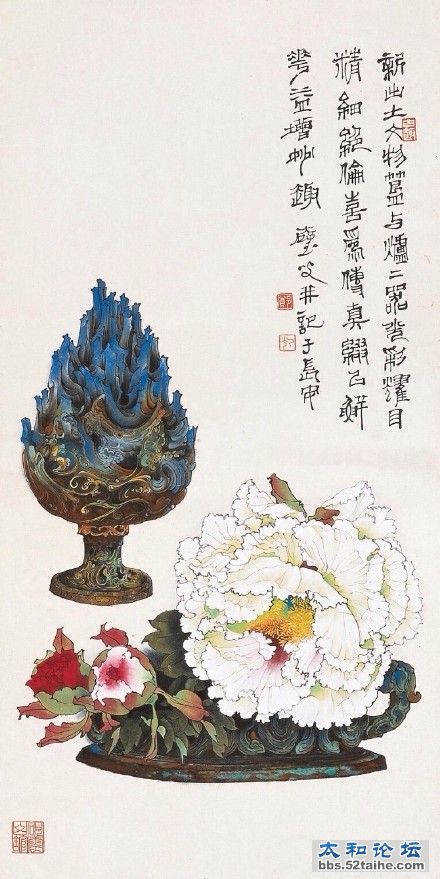 新出土文物簋与爐二器彩耀目
精細絕倫喜爲傳真綴以鮮
花益增趣璧叟并記于長
太和论坛
bbs.52taihe.com